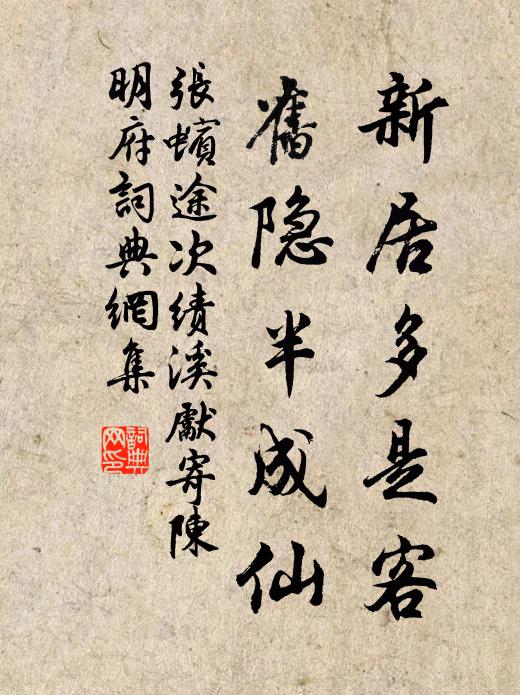 新居多是客
舊隐半成仙
張蠙途次績溪獻寄陳
明府詞典網集
詞典
网印